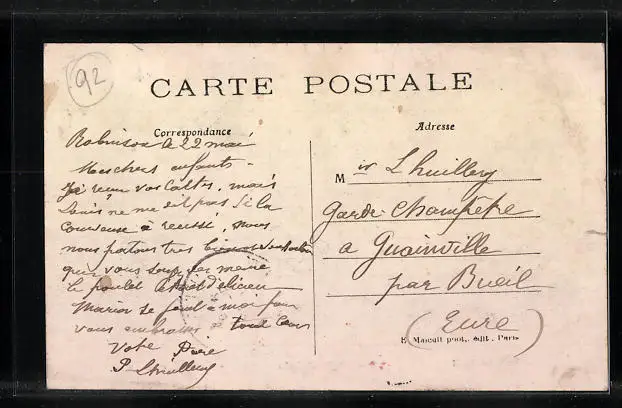 92
CARTE POSTALE
Correspondance
Adresse
Robinson le 22 mai
Mes chers enfants
J'ai reçu vos cartes, mais
Louis ne me dit pas si la
couveuse a reussi, nous
nous portons tres bien
que vous
le poulet était délicieux
Marion se joint à moi pour
vous embrasser tous
Votre Père
P Lhuillery
M ir Lhuillery
Garde Champêtre
a Guainville
par Bueil
(Eure)
E Malcuit phot., édit. Paris